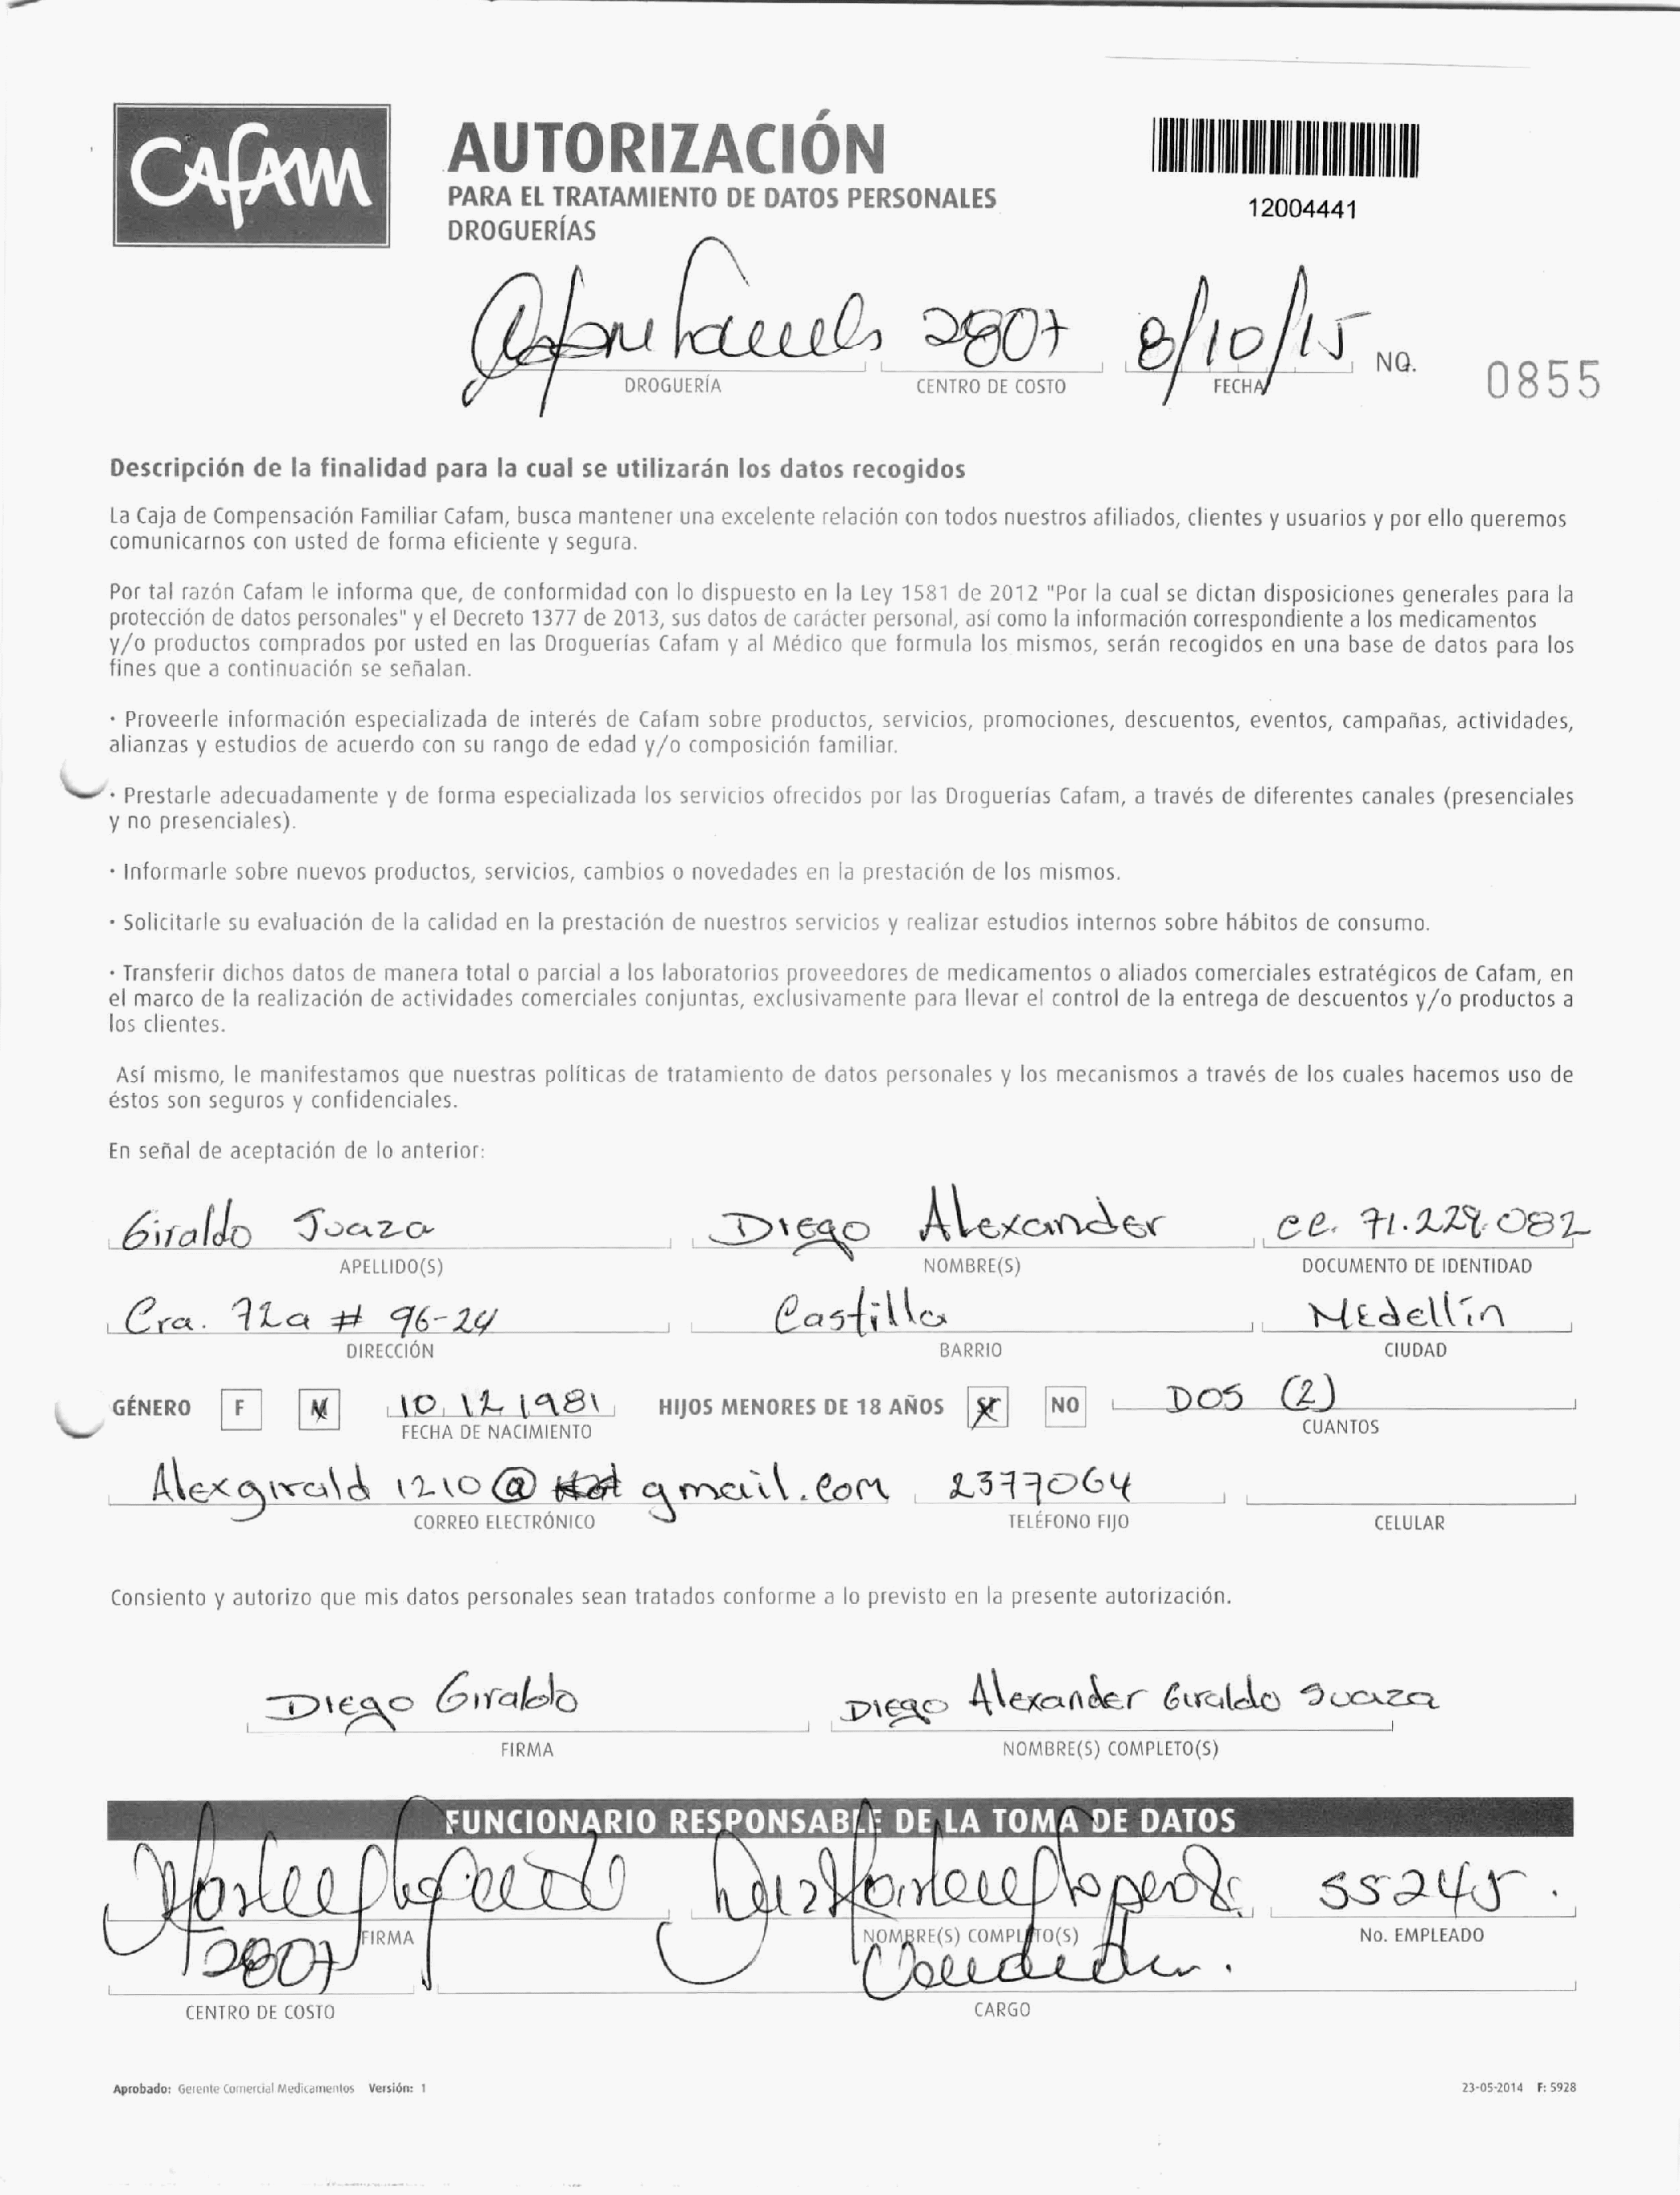 CAFAM
AUTORIZACIÓN
PARA EL TRATAMIENTO DE DATOS PERSONALES
DROGUERÍAS
12004441
2807 8/10/15 NO. 0855
DROGUERÍA CENTRO DE COSTO FECHA
Descripción de la finalidad para la cual se utilizarán los datos recogidos
La Caja de Compensación Familiar Cafam, busca mantener una excelente relación con todos nuestros afiliados, clientes y usuarios y por ello queremos
comunicarnos con usted de forma eficiente y segura.
Por tal razón Cafam le informa que, de conformidad con lo dispuesto en la Ley 1581 de 2012 "Por la cual se dictan disposiciones generales para la
protección de datos personales" y el Decreto 1377 de 2013, sus datos de carácter personal, así como la información correspondiente a los medicamentos
y/o productos comprados por usted en las Droguerías Cafam y al Médico que formula los mismos, serán recogidos en una base de datos para los
fines que a continuación se señalan.
· Proveerle información especializada de interés de Cafam sobre productos, servicios, promociones, descuentos, eventos, campañas, actividades,
alianzas y estudios de acuerdo con su rango de edad y/o composición familiar.
· Prestarle adecuadamente y de forma especializada los servicios ofrecidos por las Droguerías Cafam, a través de diferentes canales (presenciales
y no presenciales).
· Informarle sobre nuevos productos, servicios, cambios o novedades en la prestación de los mismos.
· Solicitarle su evaluación de la calidad en la prestación de nuestros servicios y realizar estudios internos sobre hábitos de consumo.
· Transferir dichos datos de manera total o parcial a los laboratorios proveedores de medicamentos o aliados comerciales estratégicos de Cafam, en
el marco de la realización de actividades comerciales conjuntas, exclusivamente para llevar el control de la entrega de descuentos y/o productos a
los clientes.
Así mismo, le manifestamos que nuestras políticas de tratamiento de datos personales y los mecanismos a través de los cuales hacemos uso de
éstos son seguros y confidenciales.
En señal de aceptación de lo anterior:
Giraldo Suaza Diego Alexander cc. 71.229.082
APELLIDO(S) NOMBRE(S) DOCUMENTO DE IDENTIDAD
Cra. 72a # 96-24 Castilla Medellín
DIRECCIÓN BARRIO CIUDAD
GÉNERO F M 10 12 1981 HIJOS MENORES DE 18 AÑOS SI NO DOS (2)
FECHA DE NACIMIENTO CUANTOS
Alexgirald 1210@ gmail.com 2377064
CORREO ELECTRÓNICO TELÉFONO FIJO CELULAR
Consiento y autorizo que mis datos personales sean tratados conforme a lo previsto en la presente autorización.
Diego Giraldo Diego Alexander Giraldo Suaza
FIRMA NOMBRE(S) COMPLETO(S)
FUNCIONARIO RESPONSABLE DE LA TOMA DE DATOS
55245.
FIRMA NOMBRE(S) COMPLETO(S) No. EMPLEADO
2807
CENTRO DE COSTO CARGO
Aprobado: Gerente Comercial Medicamentos Versión: 1 23-05-2014 F: 5928